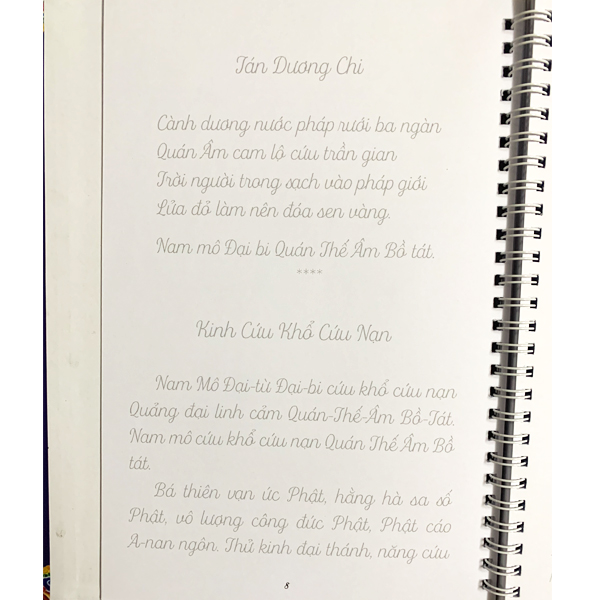 Tán Dương Chi
Cành dương nước pháp rưới ba ngàn
Quán Âm cam lộ cứu trần gian
Trời người trong sạch vào pháp giới
Lửa đỏ làm nên đóa sen vàng.
Nam mô Đại bi Quán Thế Âm Bồ tát.
****
Kinh Cứu Khổ Cứu Nạn
Nam Mô Đại-từ Đại-bi cứu khổ cứu nạn
Quảng đại linh cảm Quán-Thế-Âm Bồ-Tát.
Nam mô cứu khổ cứu nạn Quán Thế Âm Bồ
tát.
Bá thiên vạn ức Phật, hằng hà sa số
Phật, vô lượng công đức Phật, Phật cáo
A-nan ngôn. Thử kinh đại thánh, năng cứu
8